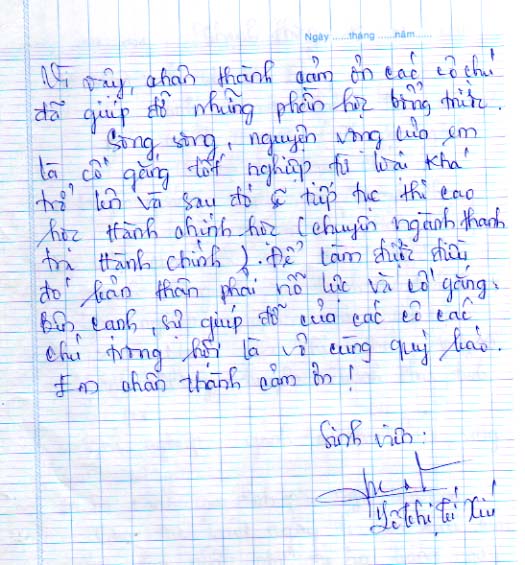 Ngày ......tháng ......năm......
Vì vậy, chân thành cảm ơn các cô chú
đã giúp đỡ những phần học bổng trước.
Song song, nguyện vọng của em
là cố gắng tốt nghiệp từ loại khá
trở lên và sau đó sẽ tiếp tục thi cao
học thành chính học (chuyên ngành thanh
tra thành chính). Để làm được điều
đó bản thân phải nỗ lực và cố gắng.
Bên cạnh, sự giúp đỡ của các cô các
chú trong hội là vô cùng quý báo.
Em chân thành cảm ơn!
Sinh viên:
thị